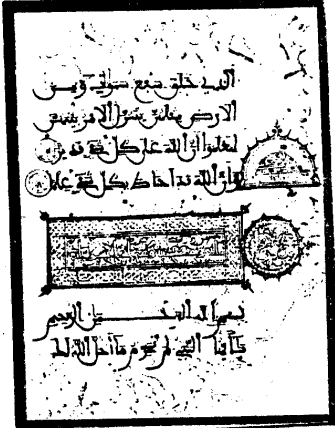 الذي خلق سبع سموت ومن
الارض مثلهن يتنزل الامر بينهن
لتعلموا ان الله على كل شيء قدير
وان الله قد احاط بكل شيء علما
بسم الله الرحمن الرحيم
يا أيها النبي لم تحرم ما أحل الله لك